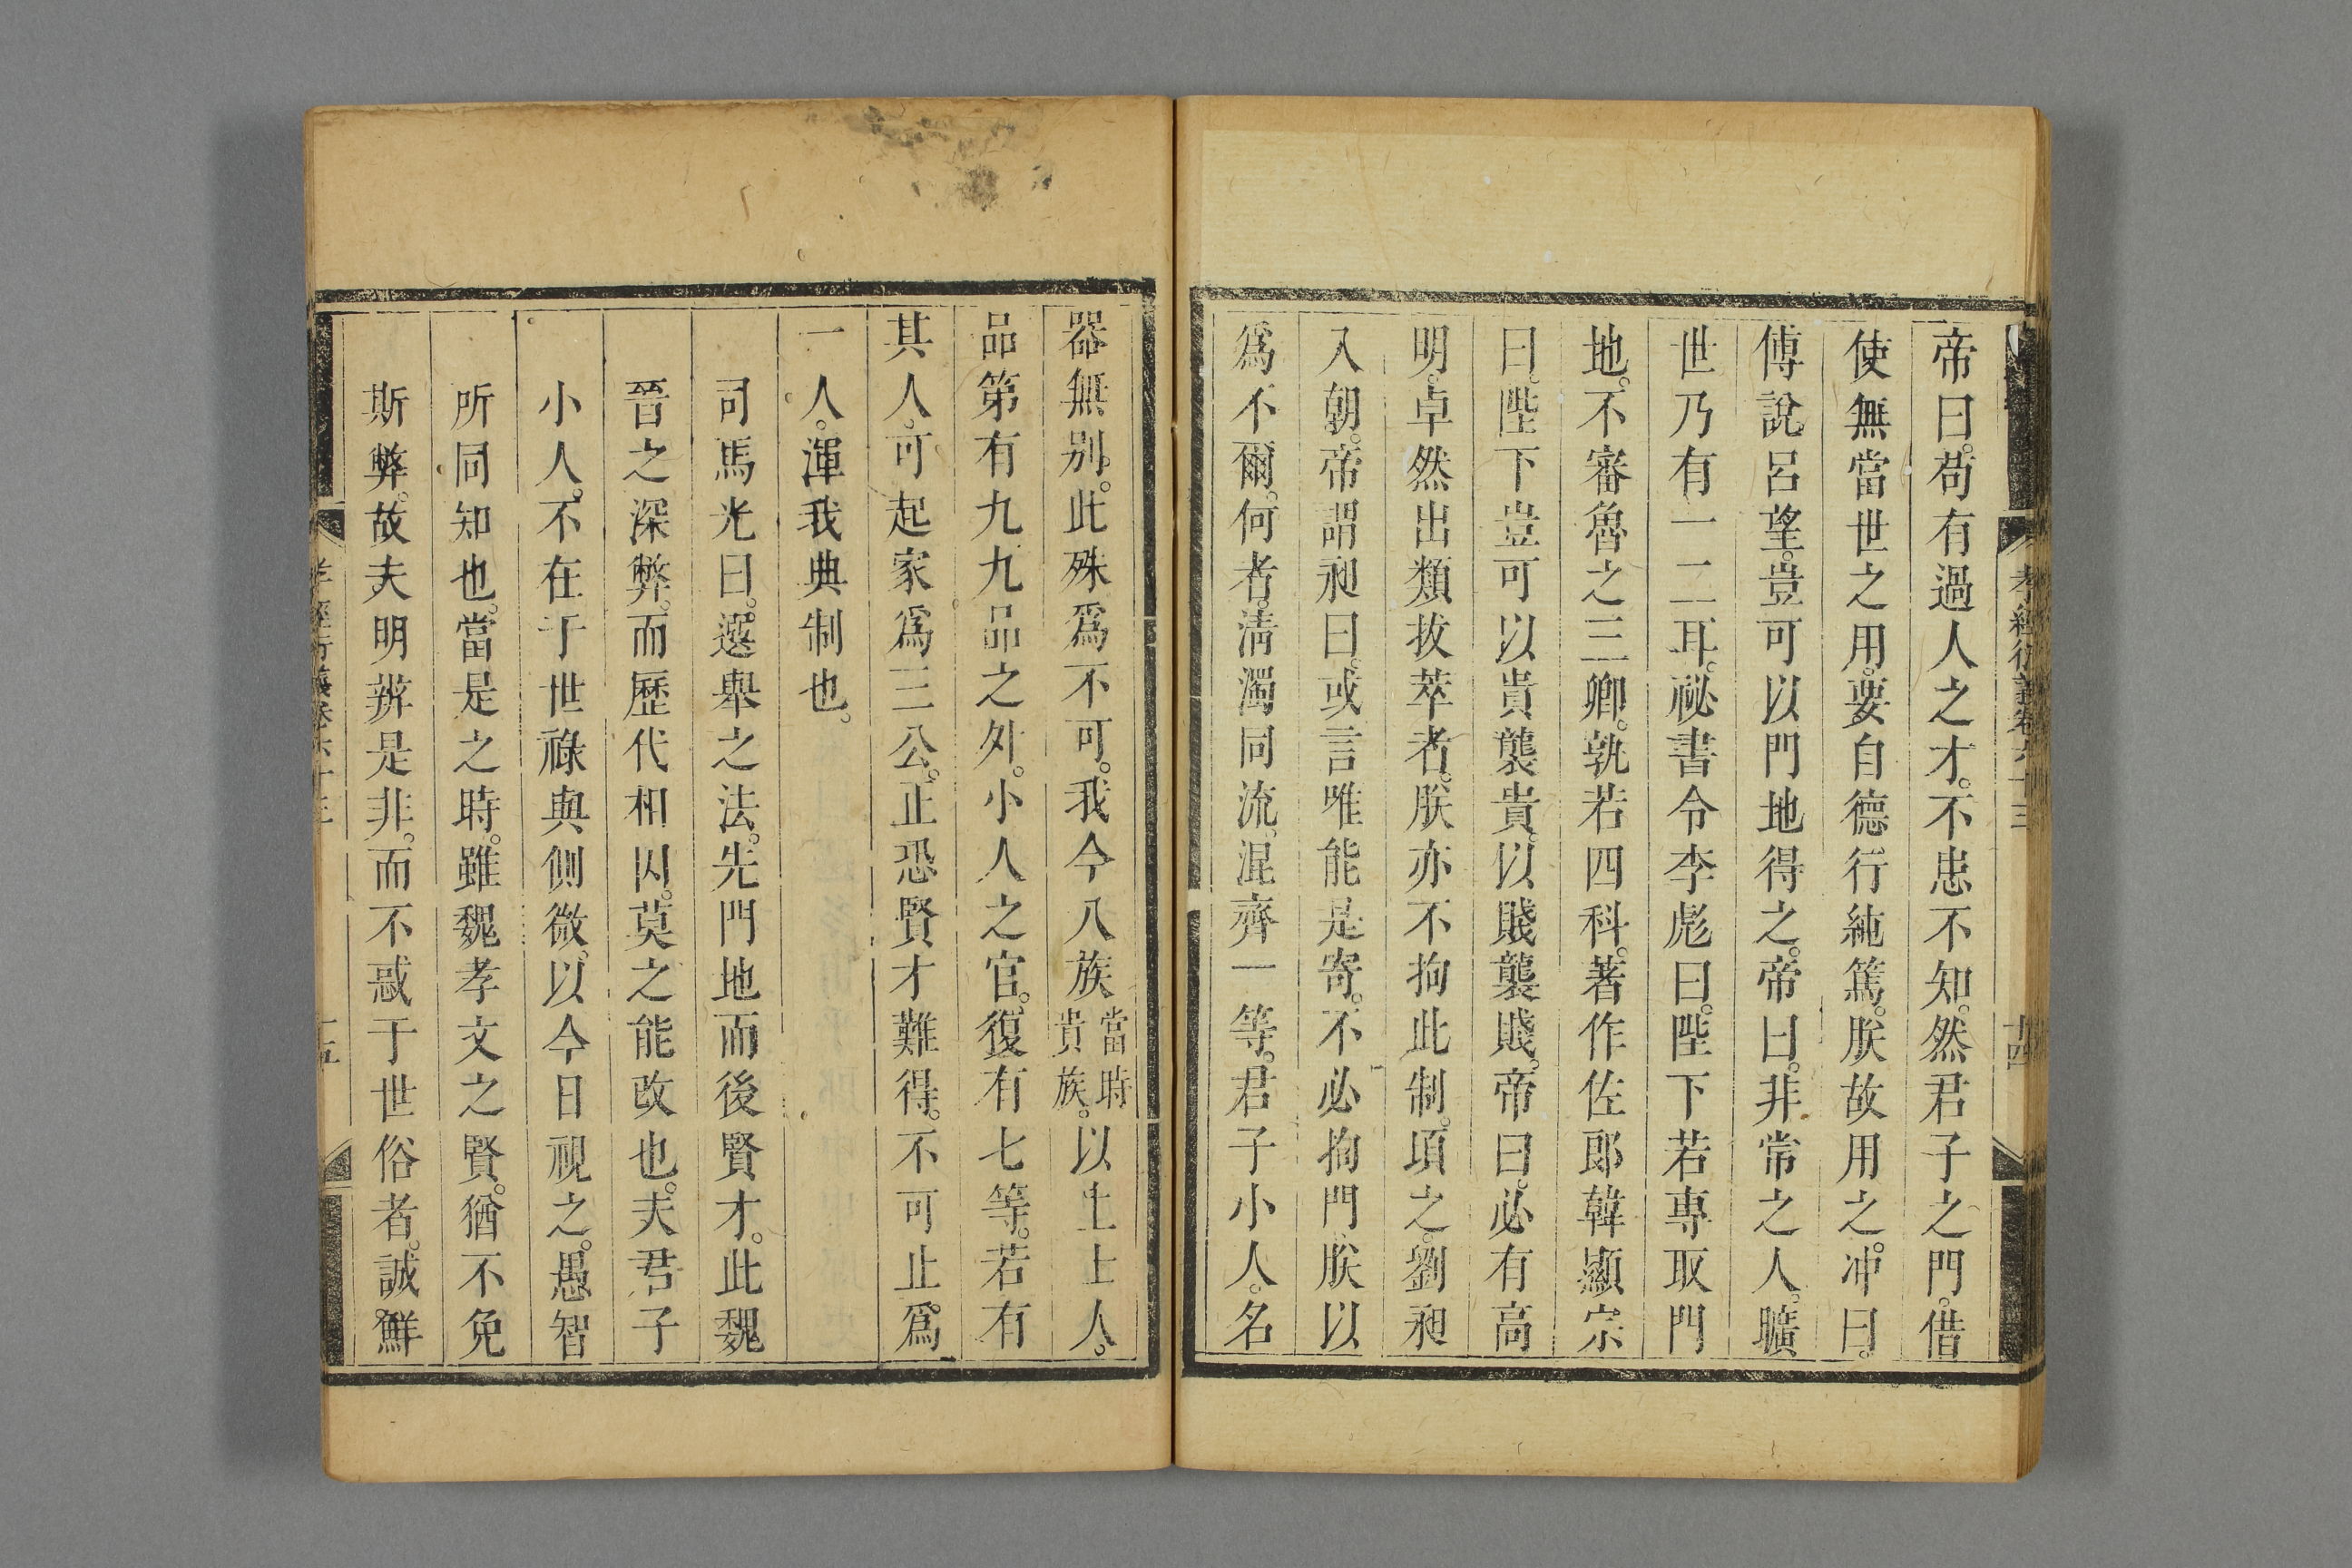 孝經衍義卷六十三
十四
帝曰。苟有過人之才。不患不知。然君子之門。借
使無當世之用。要自德行純篤。朕故用之。沖曰。
傅說呂望。豈可以門地得之。帝曰。非常之人。曠
世乃有一二耳。祕書令李彪曰。陛下若專取門
地。不審魯之三卿。孰若四科。著作佐郎韓顯宗
曰。陛下豈可以貴襲貴。以賤襲賤。帝曰。必有高
明。卓然出類拔萃者。朕亦不拘此制。頃之。劉昶
入朝。帝謂昶曰。或言唯能是寄。不必拘門。朕以
為不爾。何者。淸濁同流。混齊一等。君子小人。名
器無別。此殊為不可。我今八族當時貴族。以上士上人。
品第有九。九品之外。小人之官。復有七等。若有
其人。可起家為三公。正恐賢才難得。不可止為
一人。渾我典制也。
司馬光曰。選舉之法。先門地而後賢才。此魏
晉之深弊。而歷代相因。莫之能改也。夫君子
小人。不在于世祿與側微。以今日視之。愚智
所同知也。當是之時。雖魏孝文之賢。猶不免
斯弊。故夫明辨是非。而不惑于世俗者。誠鮮